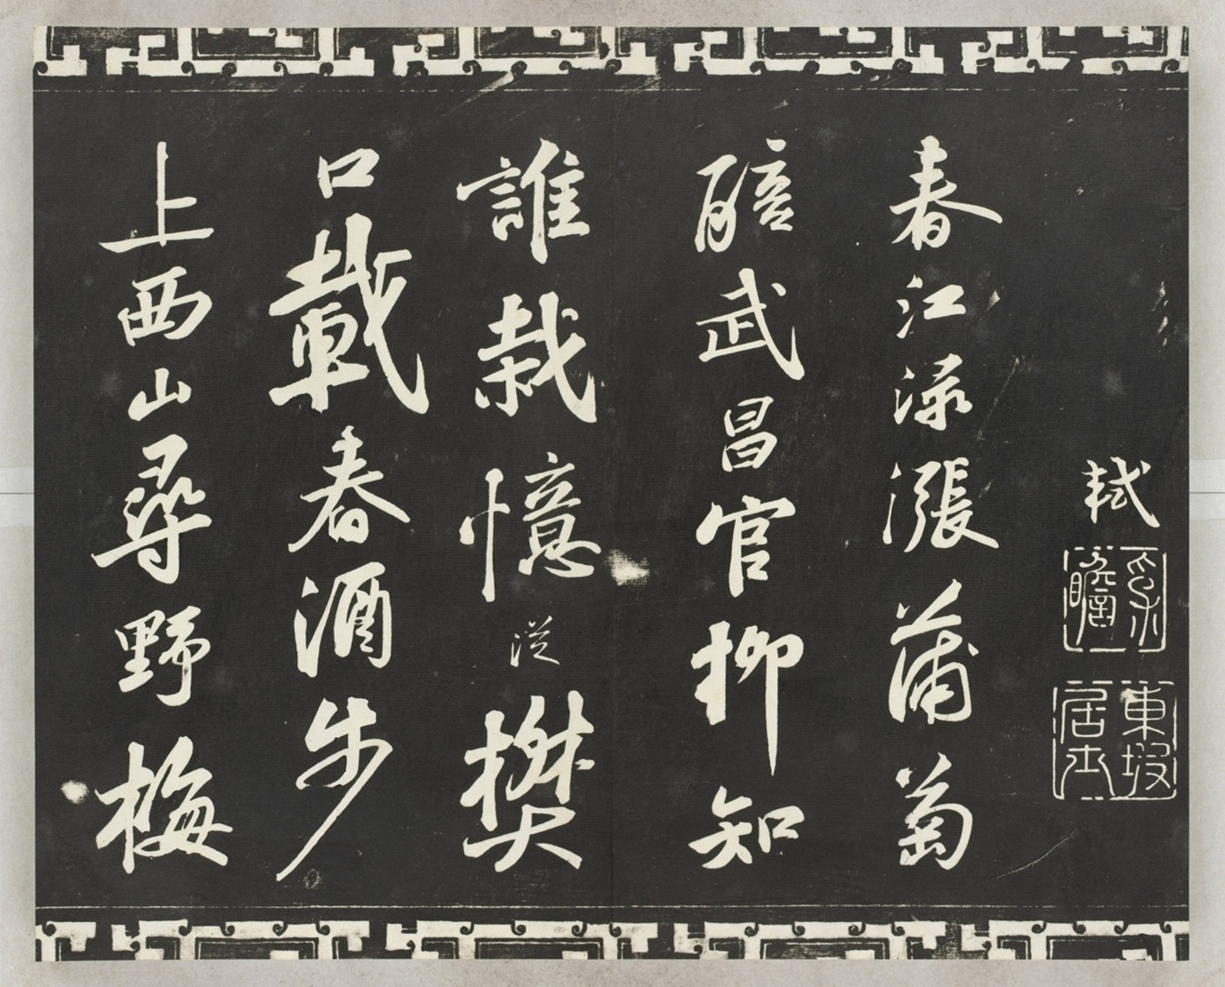 軾
東坡居士
春江渌漲蒲萄
醅武昌官柳知
誰栽憶從樊
口載春酒步
上西山尋野梅